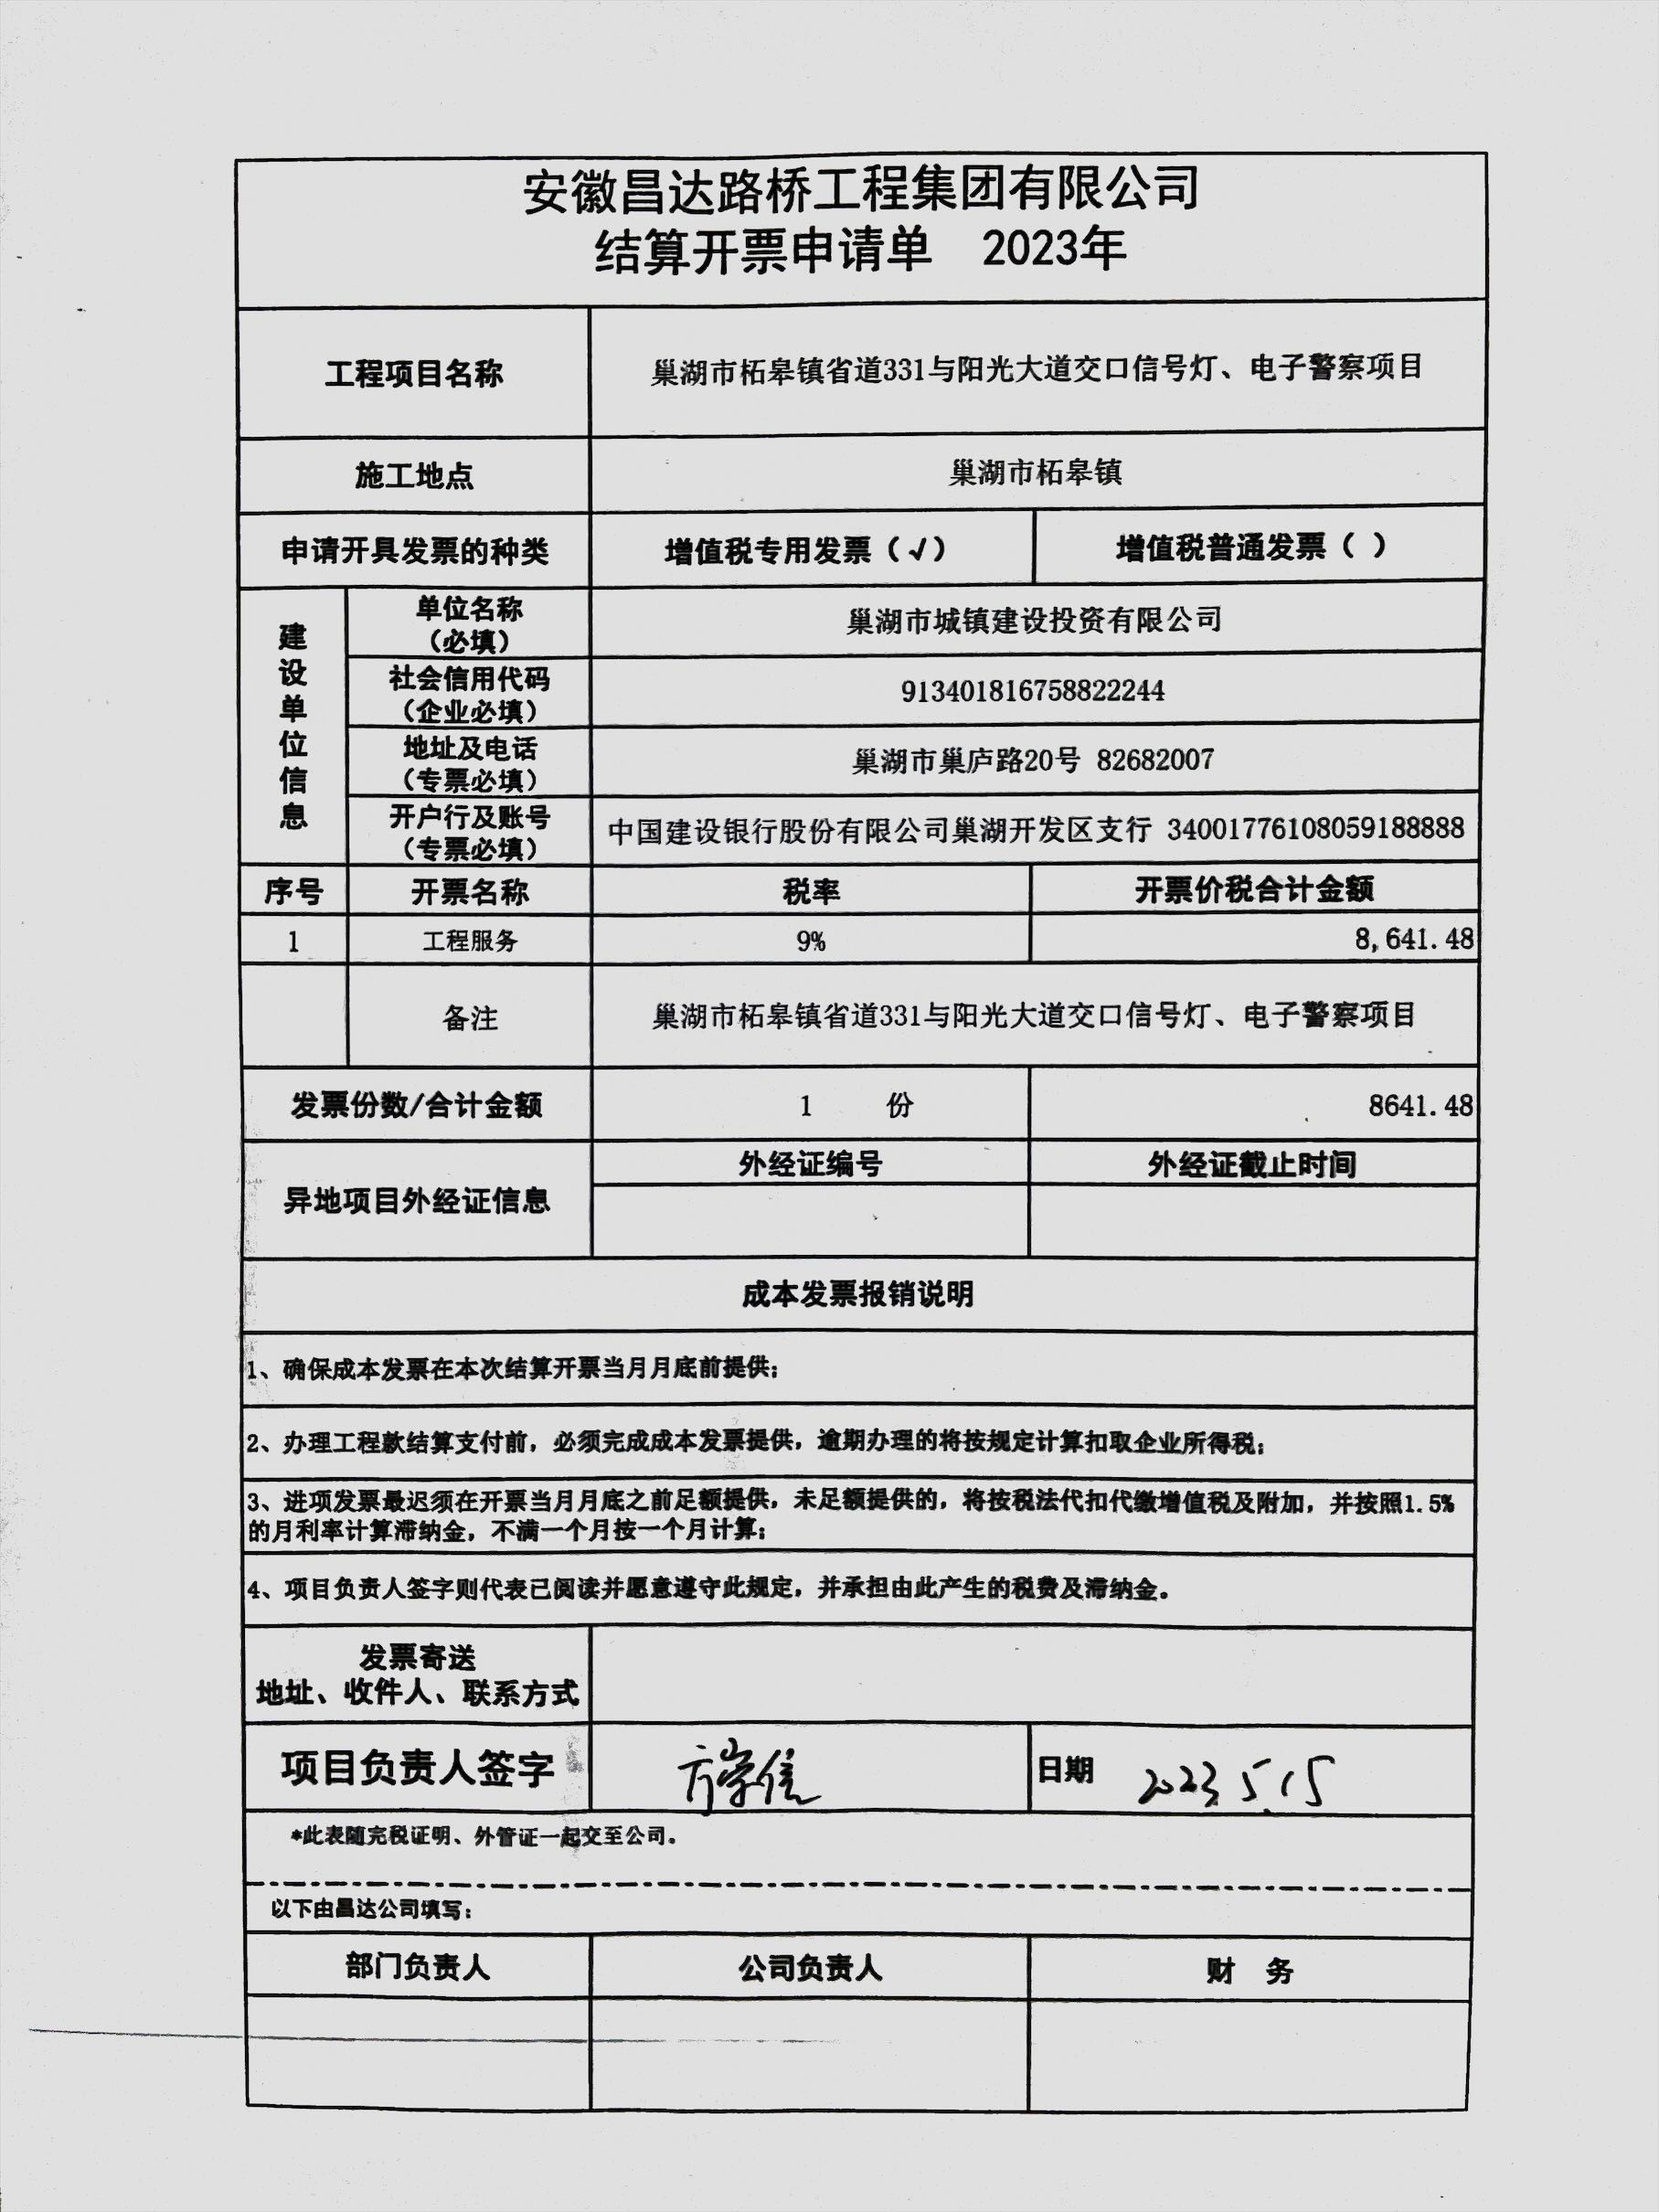 安徽昌达路桥工程集团有限公司
结算开票申请单 2023年
工程项目名称 巢湖市柘皋镇省道331与阳光大道交口信号灯、电子警察项目
施工地点 巢湖市柘皋镇
申请开具发票的种类 增值税专用发票（√） 增值税普通发票（ ）
建设单位信息
单位名称
（必填）
巢湖市城镇建设投资有限公司
社会信用代码
（企业必填）
913401816758822244
地址及电话
（专票必填）
巢湖市巢庐路20号 82682007
开户行及账号
（专票必填）
中国建设银行股份有限公司巢湖开发区支行 34001776108059188888
序号 开票名称 税率 开票价税合计金额
1 工程服务 9% 8,641.48
备注 巢湖市柘皋镇省道331与阳光大道交口信号灯、电子警察项目
发票份数/合计金额 1 份 8641.48
异地项目外经证信息
外经证编号 外经证截止时间
成本发票报销说明
1、确保成本发票在本次结算开票当月月底前提供；
2、办理工程款结算支付前，必须完成成本发票提供，逾期办理的将按规定计算扣取企业所得税；
3、进项发票最迟须在开票当月月底之前足额提供，未足额提供的，将按税法代扣代缴增值税及附加，并按照1.5%
的月利率计算滞纳金，不满一个月按一个月计算；
4、项目负责人签字则代表已阅读并愿意遵守此规定，并承担由此产生的税费及滞纳金。
发票寄送
地址、收件人、联系方式
项目负责人签字 方学信 日期 2023.5.15
*此表随完税证明、外管证一起交至公司。
以下由昌达公司填写：
部门负责人 公司负责人 财 务